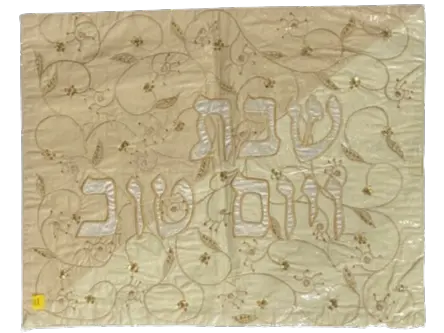 שבת
ויום טוב